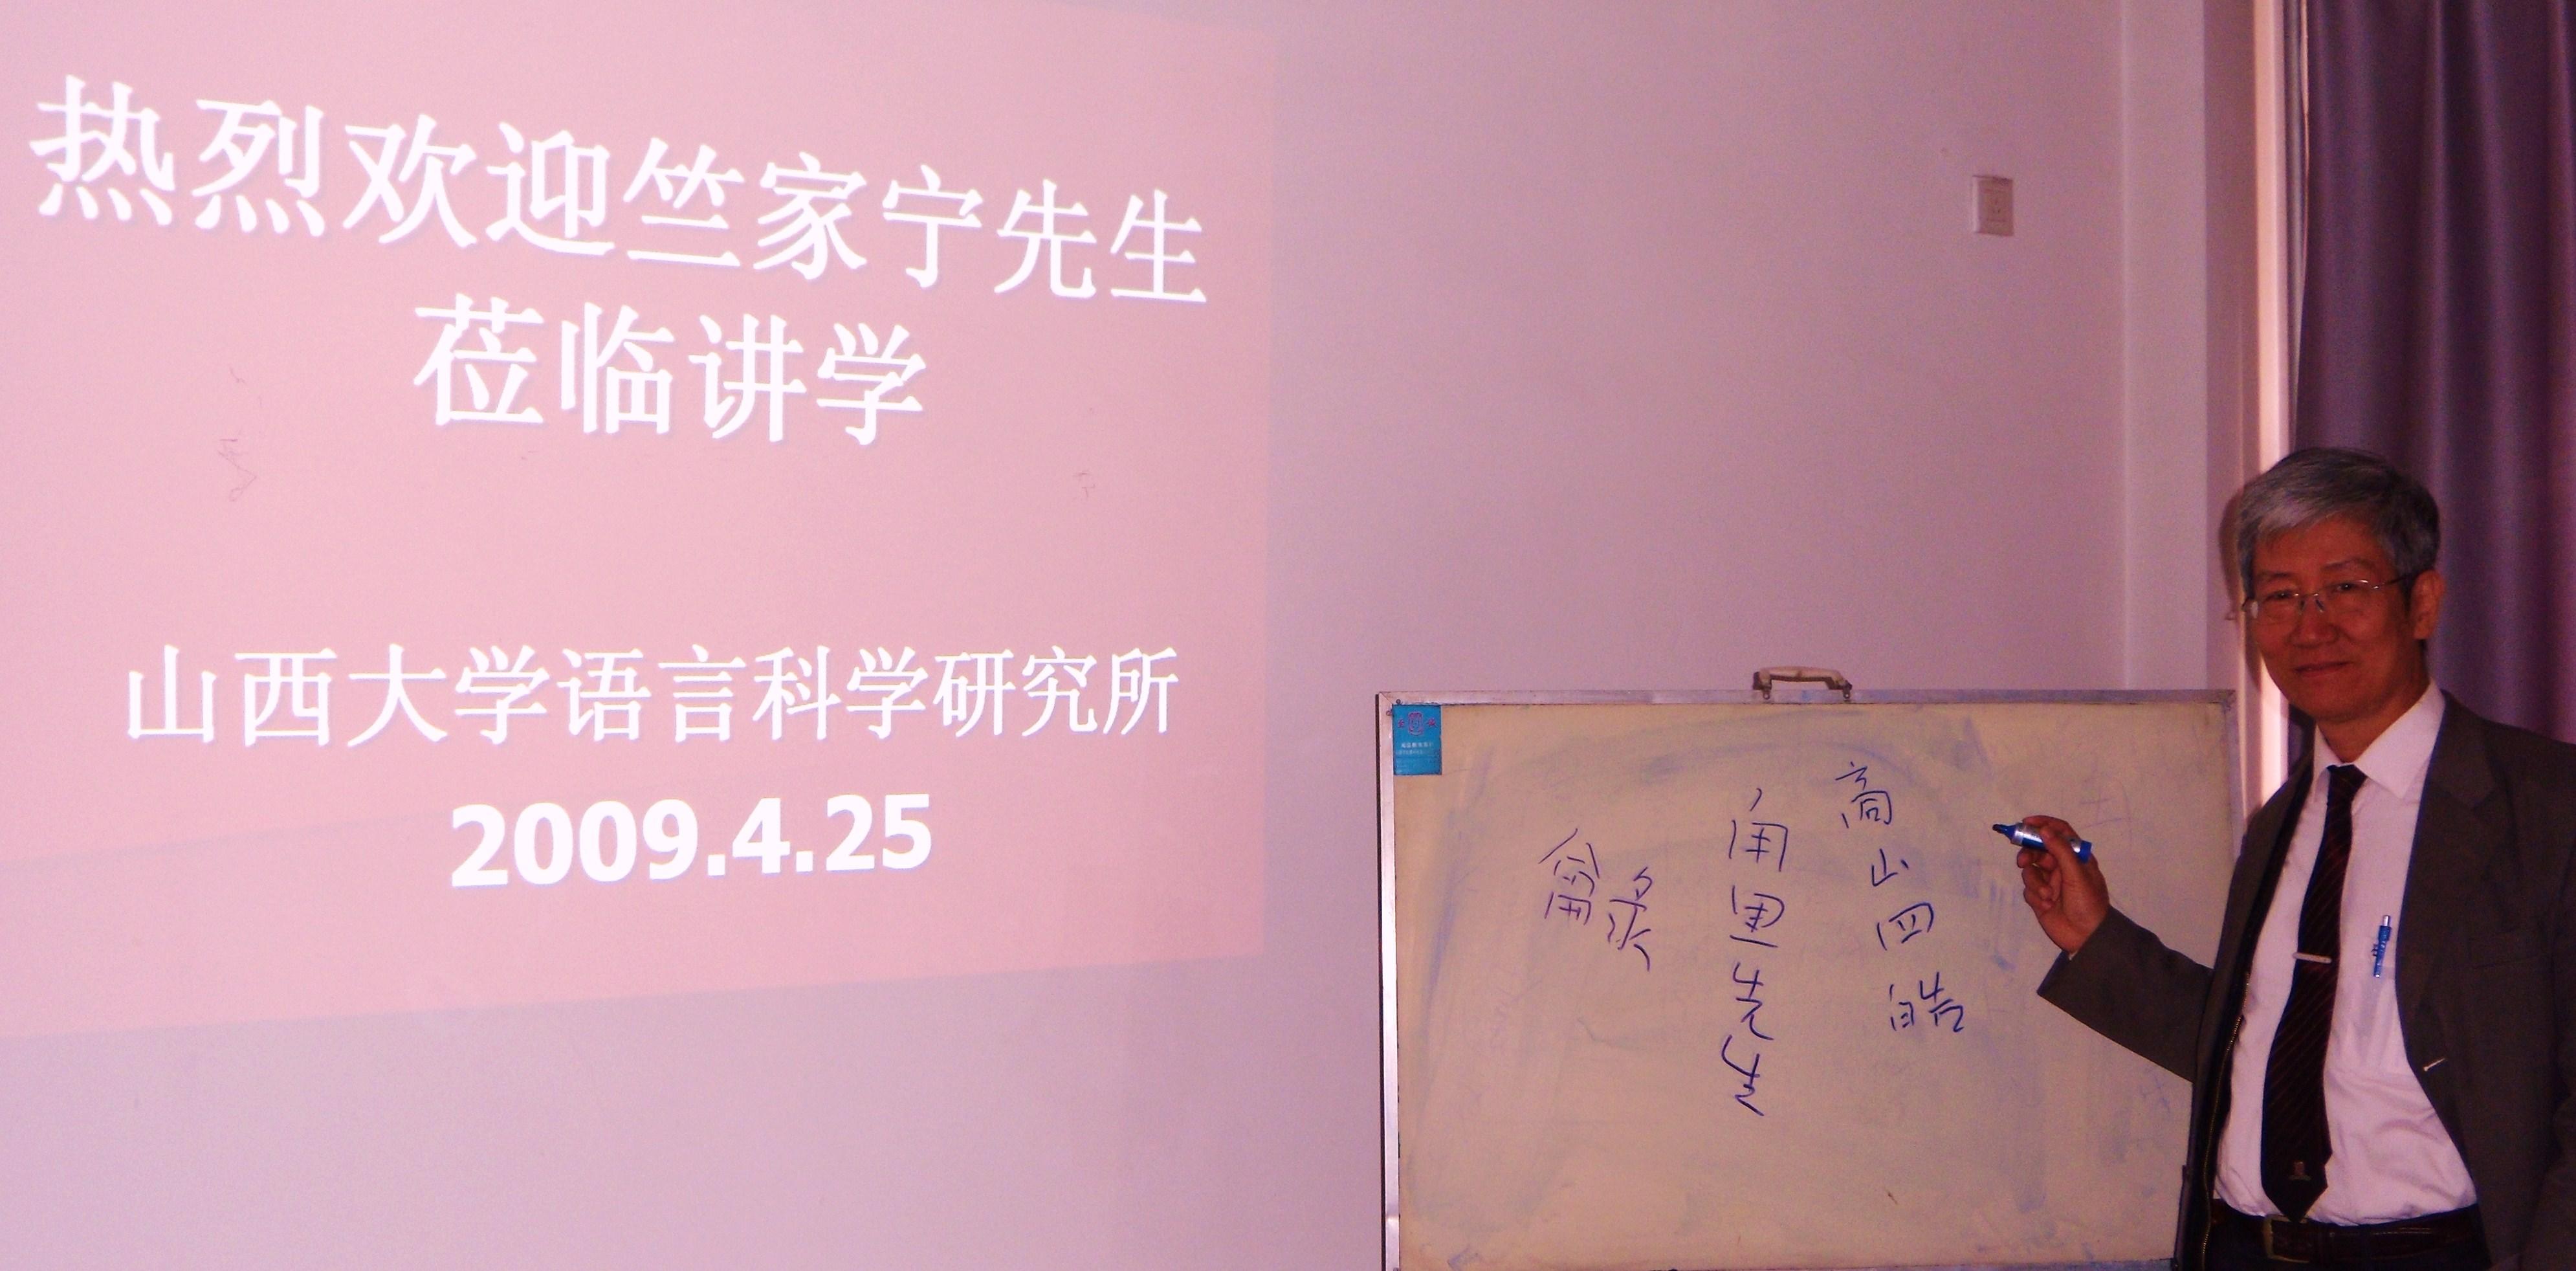 热烈欢迎竺家宁先生
莅临讲学
山西大学语言科学研究所
2009.4.25
高山四皓
甪里先生
龠彔